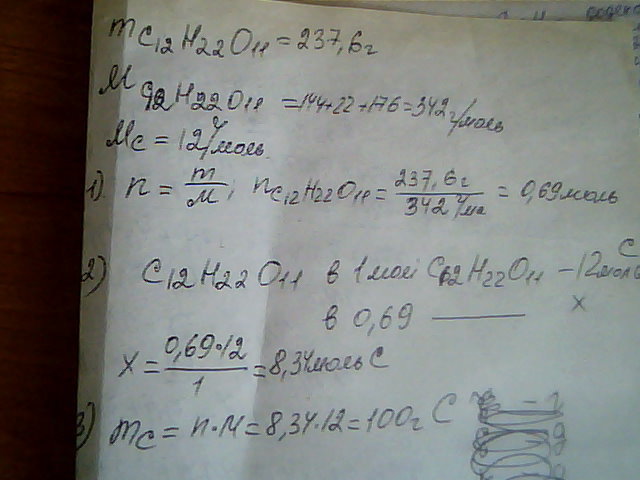 mC12H22O11 = 237,6г
MC12H22O11 = 144+22+176 = 342 г/моль
Mc = 12 г/моль
1) n = m/M; nC12H22O11 = 237,6г/342 г/мо = 0,69 моль
2) C12H22O11 в 1 мол C12H22O11 – 12 моль C
в 0,69 —— x
x = 0,69·12/1 = 8,34 моль C
3) mc = n·M = 8,34·12 = 100г C